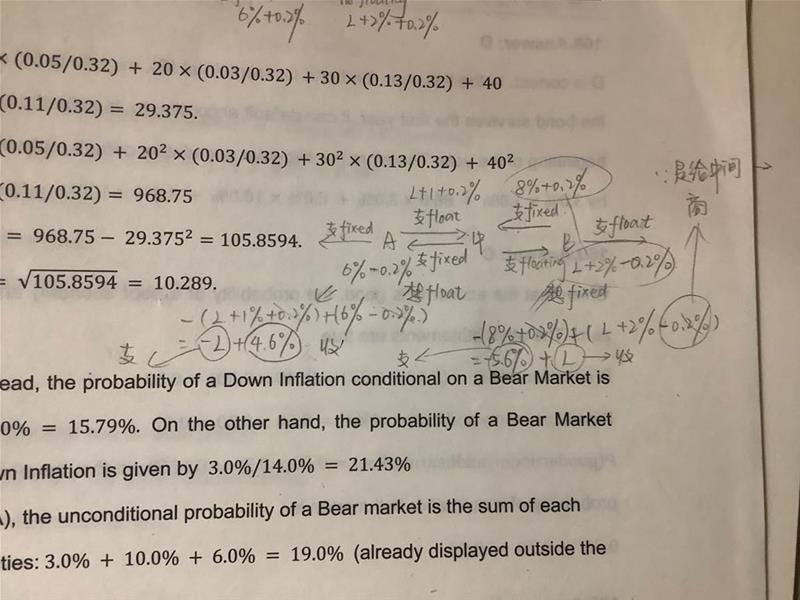 6%+0.2% L+2%+0.2%
× (0.05/0.32) + 20 × (0.03/0.32) + 30 × (0.13/0.32) + 40
(0.11/0.32) = 29.375.
(0.05/0.32) + 20² × (0.03/0.32) + 30² × (0.13/0.32) + 40²
(0.11/0.32) = 968.75
L+1+0.2% 8%+0.2% ∵是给中间商
= 968.75 − 29.375² = 105.8594.
支fixed A 支float 中 支fixed B 支float
= √105.8594 = 10.289.
6%-0.2% 支fixed 支floating L+2%-0.2%
想float 想fixed
-(L+1%+0.2%)+(6%-0.2%)
-(8%+0.2%)+(L+2%-0.2%)
支 =-L+4.6% 收
支 =-5.6%+L 收
ead, the probability of a Down Inflation conditional on a Bear Market is
0% = 15.79%. On the other hand, the probability of a Bear Market
wn Inflation is given by 3.0%/14.0% = 21.43%
A), the unconditional probability of a Bear market is the sum of each
ties: 3.0% + 10.0% + 6.0% = 19.0% (already displayed outside the